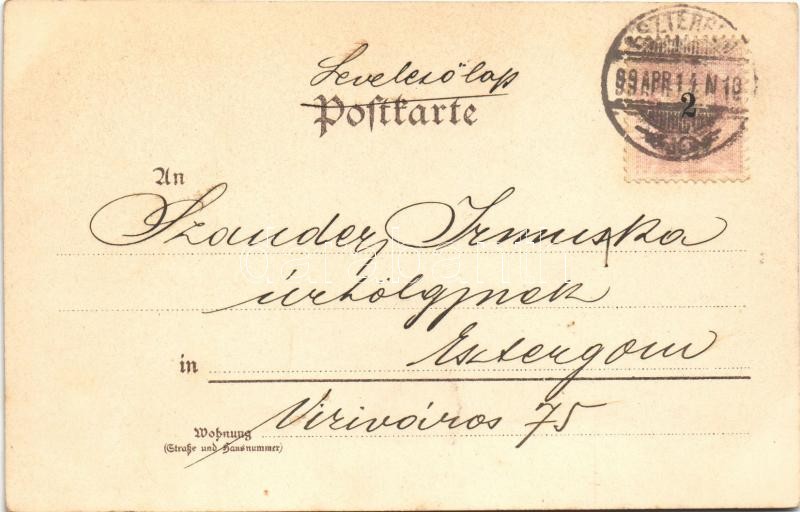 Levelezőlap
Postkarte
ESZTERGOM
99 APR. 14 N 10
2
An
Szander Irmuska
úrhölgynek
in Esztergom
Viziváros 75
Wohnung
(Straße und Hausnummer)